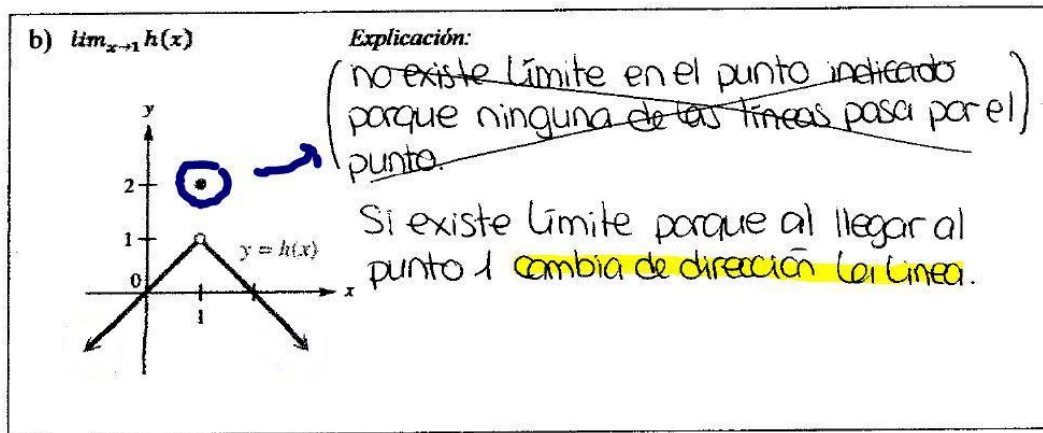 b) lim x→1 h(x)
Explicación:
(no existe límite en el punto indicado
porque ninguna de las líneas pasa por el)
punto.
Si existe límite porque al llegar al
punto 1 cambia de dirección la línea.
y
2
1
y = h(x)
0
x
1